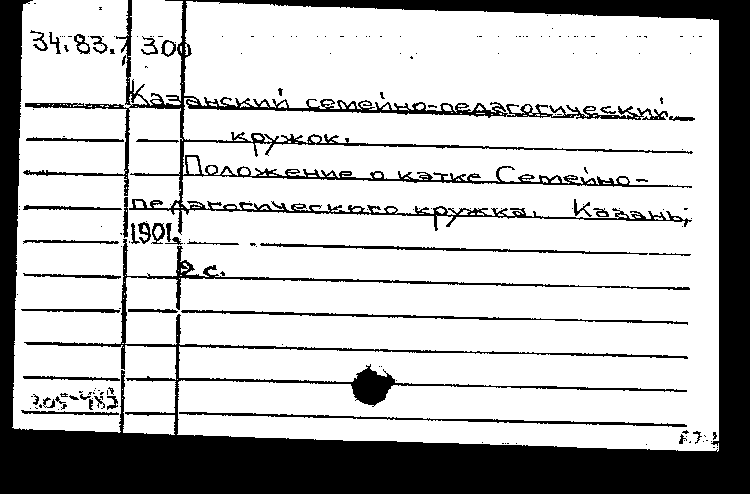 34.83.7 300
Казанский семейно-педагогический
кружок.
Положение о катке Семейно-
педагогического кружка. Казань,
1901.
2 с.
205-483